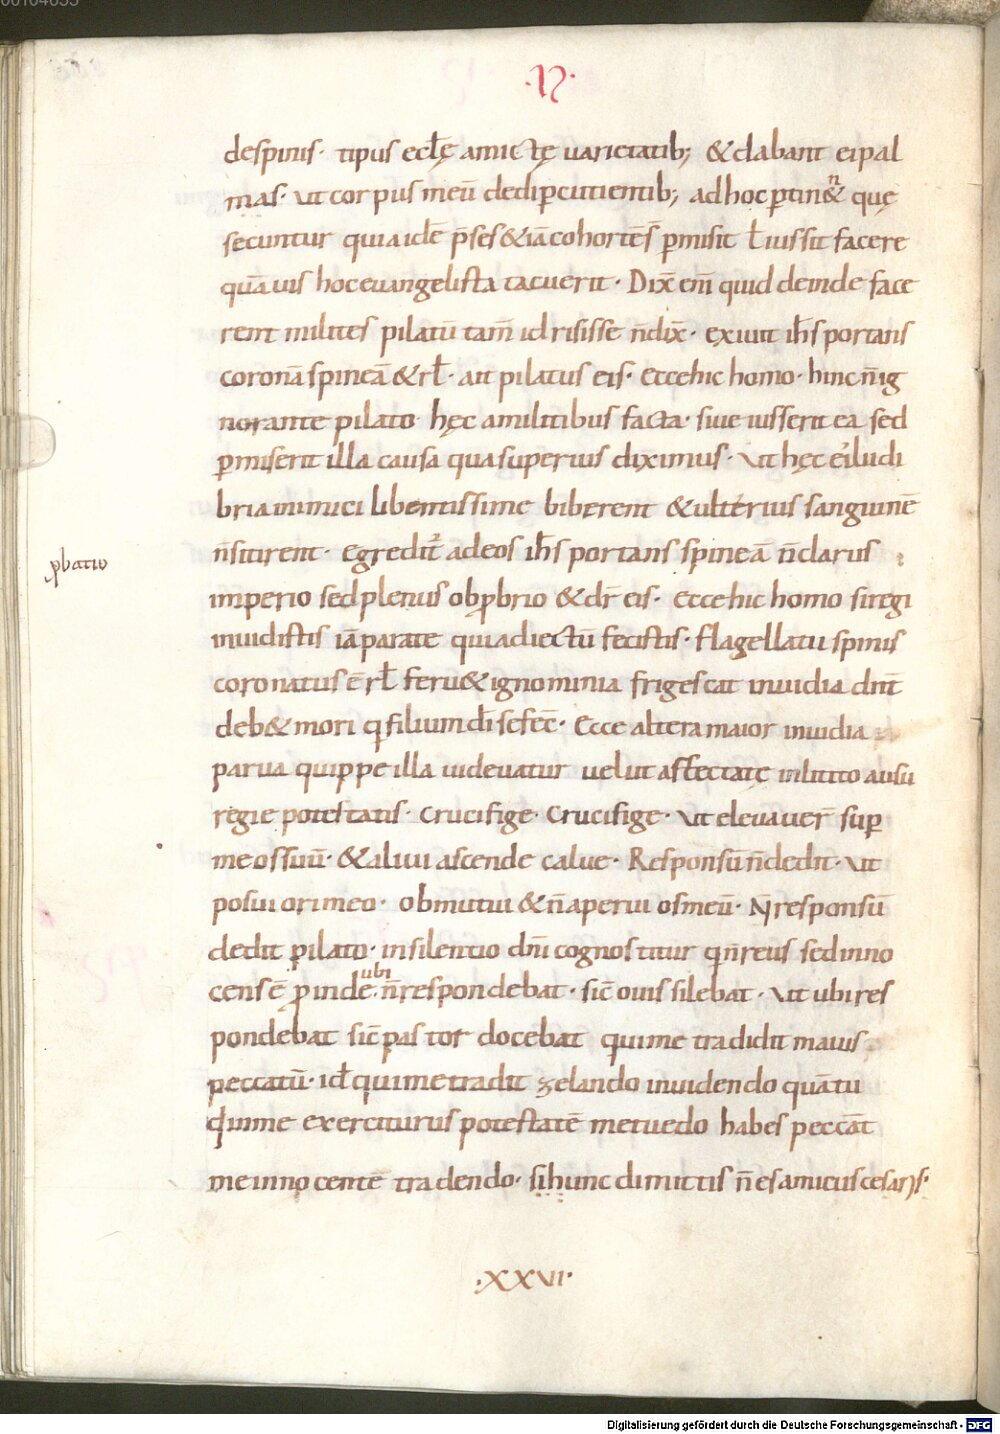 ·N·
despinis· tipus eclę amictę varietatib; & dabant ei pal
mas· Ut corpus meū dedi ꝑcutientib; ad hoc ꝑtin& quę
secuntur quia idē p̄ses & iā cohortēs ꝑmisit ƚ iussit facere
quāuis hoc euangelista tacuerit· Dix̄ enī quid deinde face
rent milites pilatū tam̄ id risisse n̄ dix̄· exiuit ih̄s portans
coronā spineā & rƚ· ait pilatus eis· Ecce hic homo· hinc n̄ ig
norante pilato hęc a militibus facta· siue iusserit ea sed
ꝑmiserit illa causa qua superius diximus· Ut hęc ei ludi
bria inimici libentissime biberent & ulterius sanguinē
n̄ sitirent· Egredit̄ ad eos ih̄s portans spineā n̄ clarus
ꝓbatio
imperio sed plenus obꝓbrio & dr̄ eis· Ecce hic homo si regi
inuidistis iā parate quia diectū fecistis· flagellatu spinis
coronatus ē rƚ feru& ignominia frigescat inuidia
deb& mori q filium dī se fec̄· Ecce altera maior inuidia
parua quippe illa videvatur velut affectatę inlitito ausu
regie potestatis· Crucifige· Crucifige· Ut elevauer̄ suꝑ
me os suū· & alivi ascende calve· Responsū n̄ dedit· Ut
posui ori meo· obmutui & n̄ aperui os meū· N̄ responsū
dedit pilato· in silentio dn̄i cognostitur q n̄ reus sed inno
cens ē ꝓinde· ubi n̄ respondebat· sic̄ ovis silebat· Ut ubi res
pondebat sic̄ pastor docebat qui me tradidit maius
peccatū· id̄ qui me tradit zelando inuidendo quātu
qui me exerciturus potestatē metuedo habes peccāt
me innocentē tradendo· si hunc dimittis n̄ es amicus cesaris·
·XXVI·
Digitalisierung gefördert durch die Deutsche Forschungsgemeinschaft - DFG